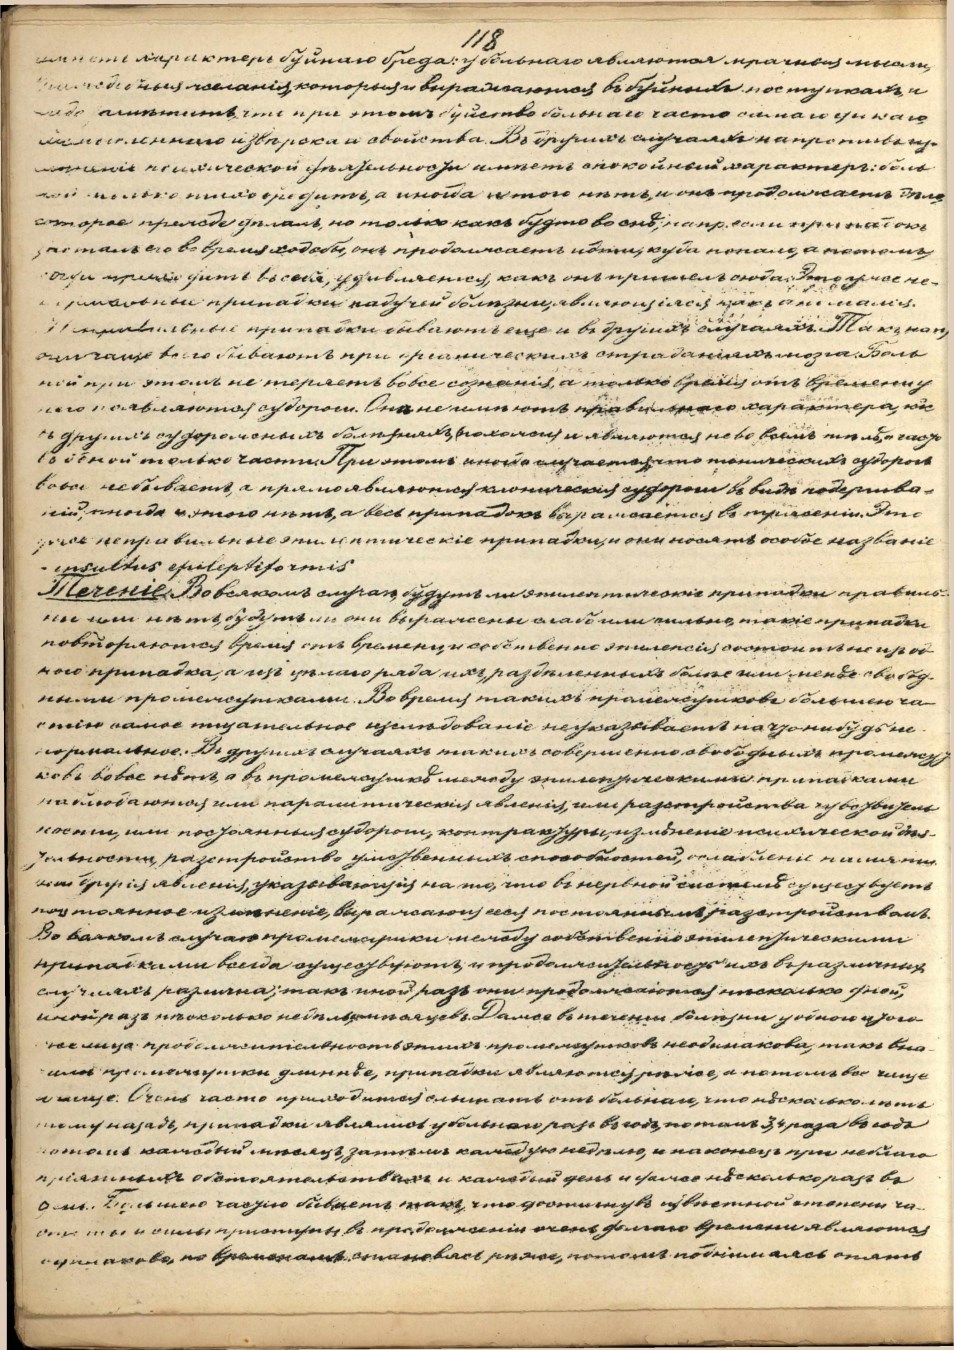 118
имѣетъ характеръ буйнаго бреда: у больнаго являются мрачныя мысли,
желанія, которыя и выражаются въ буйныхъ поступкахъ, и
надо замѣтить, что при этомъ буйство больнаго часто самаго дикаго
извѣрска и свойства. Въ другихъ случаяхъ напротивъ из-
мѣненіе психической дѣятельности имѣетъ спокойный характеръ: боль
ной только тихо бредитъ, а иногда и того нѣтъ, и онъ продолжаетъ дѣло
которое прежде дѣлалъ, но только какъ будто во снѣ; напр. если припадокъ
засталъ его во время ходьбы, онъ продолжаетъ идти, куда попало, а потомъ,
когда приходитъ въ себя, удивляется, какъ онъ пришелъ сюда. Это уже не-
нормальные припадки падучей болѣзни, являющіяся какъ аномалія.
Неправильные припадки бываютъ еще и въ другихъ случаяхъ. Такъ нап.,
они чаще всего бываютъ при органическихъ страданіяхъ мозга. Боль
ной при этомъ не теряетъ вовсе сознанія, а только время отъ времени у
него появляются судороги. Онѣ не имѣютъ правильнаго характера, какъ
въ другихъ судорожныхъ болѣзняхъ, и являются не во всемъ тѣлѣ, а часто
въ одной только части. При этомъ иногда случается, что тоническихъ судорогъ
вовсе не бываетъ, а прямо являются клоническія судороги въ видѣ подергива-
ній, иногда и этого нѣтъ, а весь припадокъ выражается въ трясеніи. Это
уже неправильные эпилептическіе припадки, и они носятъ особое названіе
- insultus epileptiformis
Теченіе. Во всякомъ случаѣ, будутъ ли эпилептическіе припадки правиль-
ны или нѣтъ, будутъ ли они выражены слабо или сильно, такіе припадки
повторяются время отъ времени, и собственно эпилепсія состоитъ не изъ од
ного припадка, а изъ цѣлаго ряда ихъ, раздѣленныхъ болѣе или менѣе свобод-
ными промежутками. Во время такихъ промежутковъ большею ча-
стію самое тщательное изслѣдованіе не указываетъ на что нибудь не-
нормальное. Въ другихъ случаяхъ такихъ совершенно свободныхъ промежут
ковъ вовсе нѣтъ, а въ промежуткѣ между эпилептическими припадками
наблюдаются или паралитическія явленія, или разстройства чувствитель
ности, или постоянныя судороги, контрактуры, измѣненіе психической дѣя-
тельности, разстройство умственныхъ способностей, ослабленіе памяти
или другія явленія, указывающія на то, что въ нервной системѣ существуетъ
постоянное измѣненіе, выражающееся постояннымъ разстройствомъ.
Во всякомъ случаѣ промежутки между собственно эпилептическими
припадками всегда существуютъ, и продолжительность ихъ въ различныхъ
случаяхъ различна; такъ иной разъ они продолжаются нѣсколько дней,
иной разъ нѣсколько недѣль, мѣсяцевъ. Даже въ теченіи болѣзни у одного и того
же лица продолжительность этихъ промежутковъ неодинакова, такъ вна-
чалѣ промежутки длиннѣе, припадки являются рѣже, а потомъ все чаще
и чаще. Очень часто приходится слышать отъ больнаго, что нѣсколько лѣтъ
тому назадъ, припадки являлись у больнаго разъ въ годъ, потомъ 3, 4 раза въ годъ
потомъ каждый мѣсяцъ, затѣмъ каждую недѣлю, и наконецъ при неблаго
пріятныхъ обстоятельствахъ и каждый день и даже нѣсколько разъ въ
день. Большею частію бываетъ такъ, что достигнувъ извѣстной степени ча-
стоты и силы приступы, въ продолженіи очень долгаго времени являются
одинаково, по временамъ становясь рѣже, потомъ поднимаясь опять